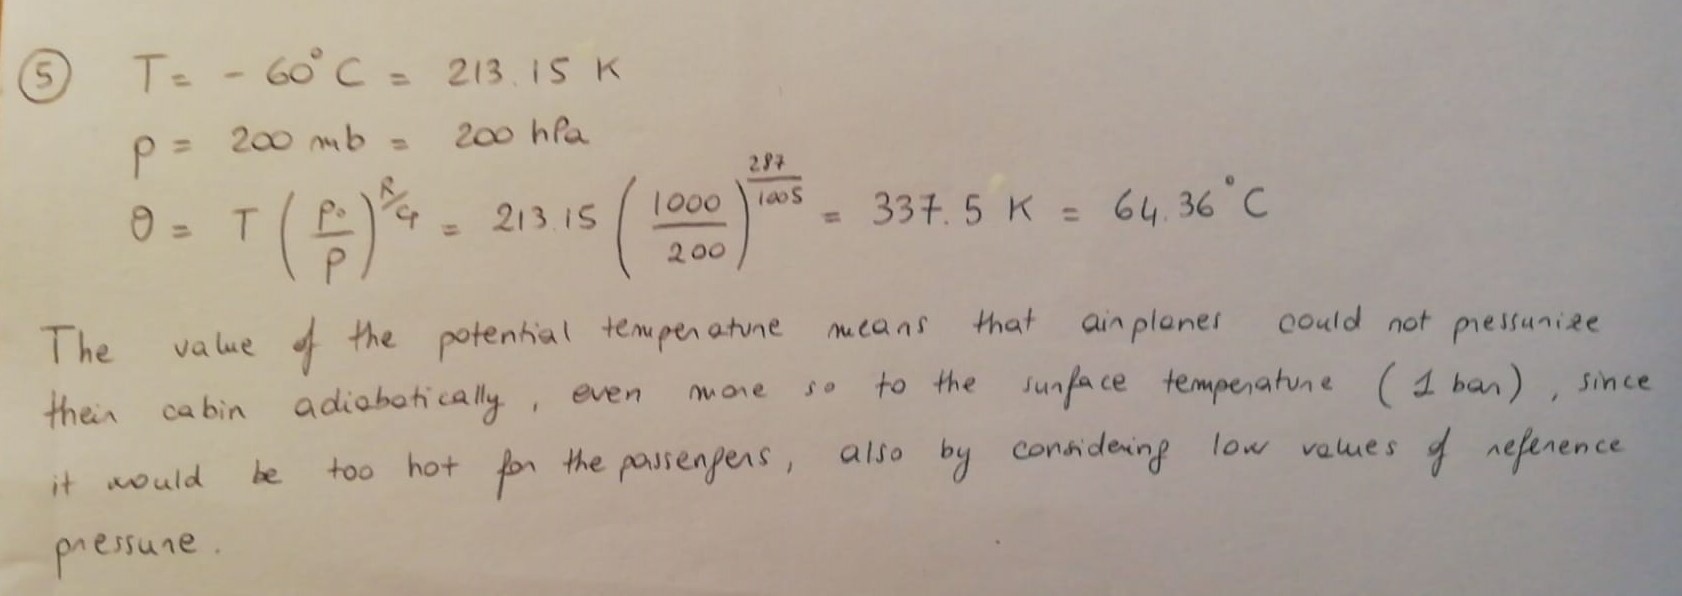 ⑤ T = - 60°C = 213.15 K
p = 200 mb = 200 hPa
θ = T (p₀/p)^(R/cp) = 213.15 (1000/200)^(287/1005) = 337.5 K = 64.36°C
The value of the potential temperature means that airplanes could not pressurize
their cabin adiabatically, even more so to the surface temperature (1 bar), since
it would be too hot for the passengers, also by considering low values of reference
pressure.